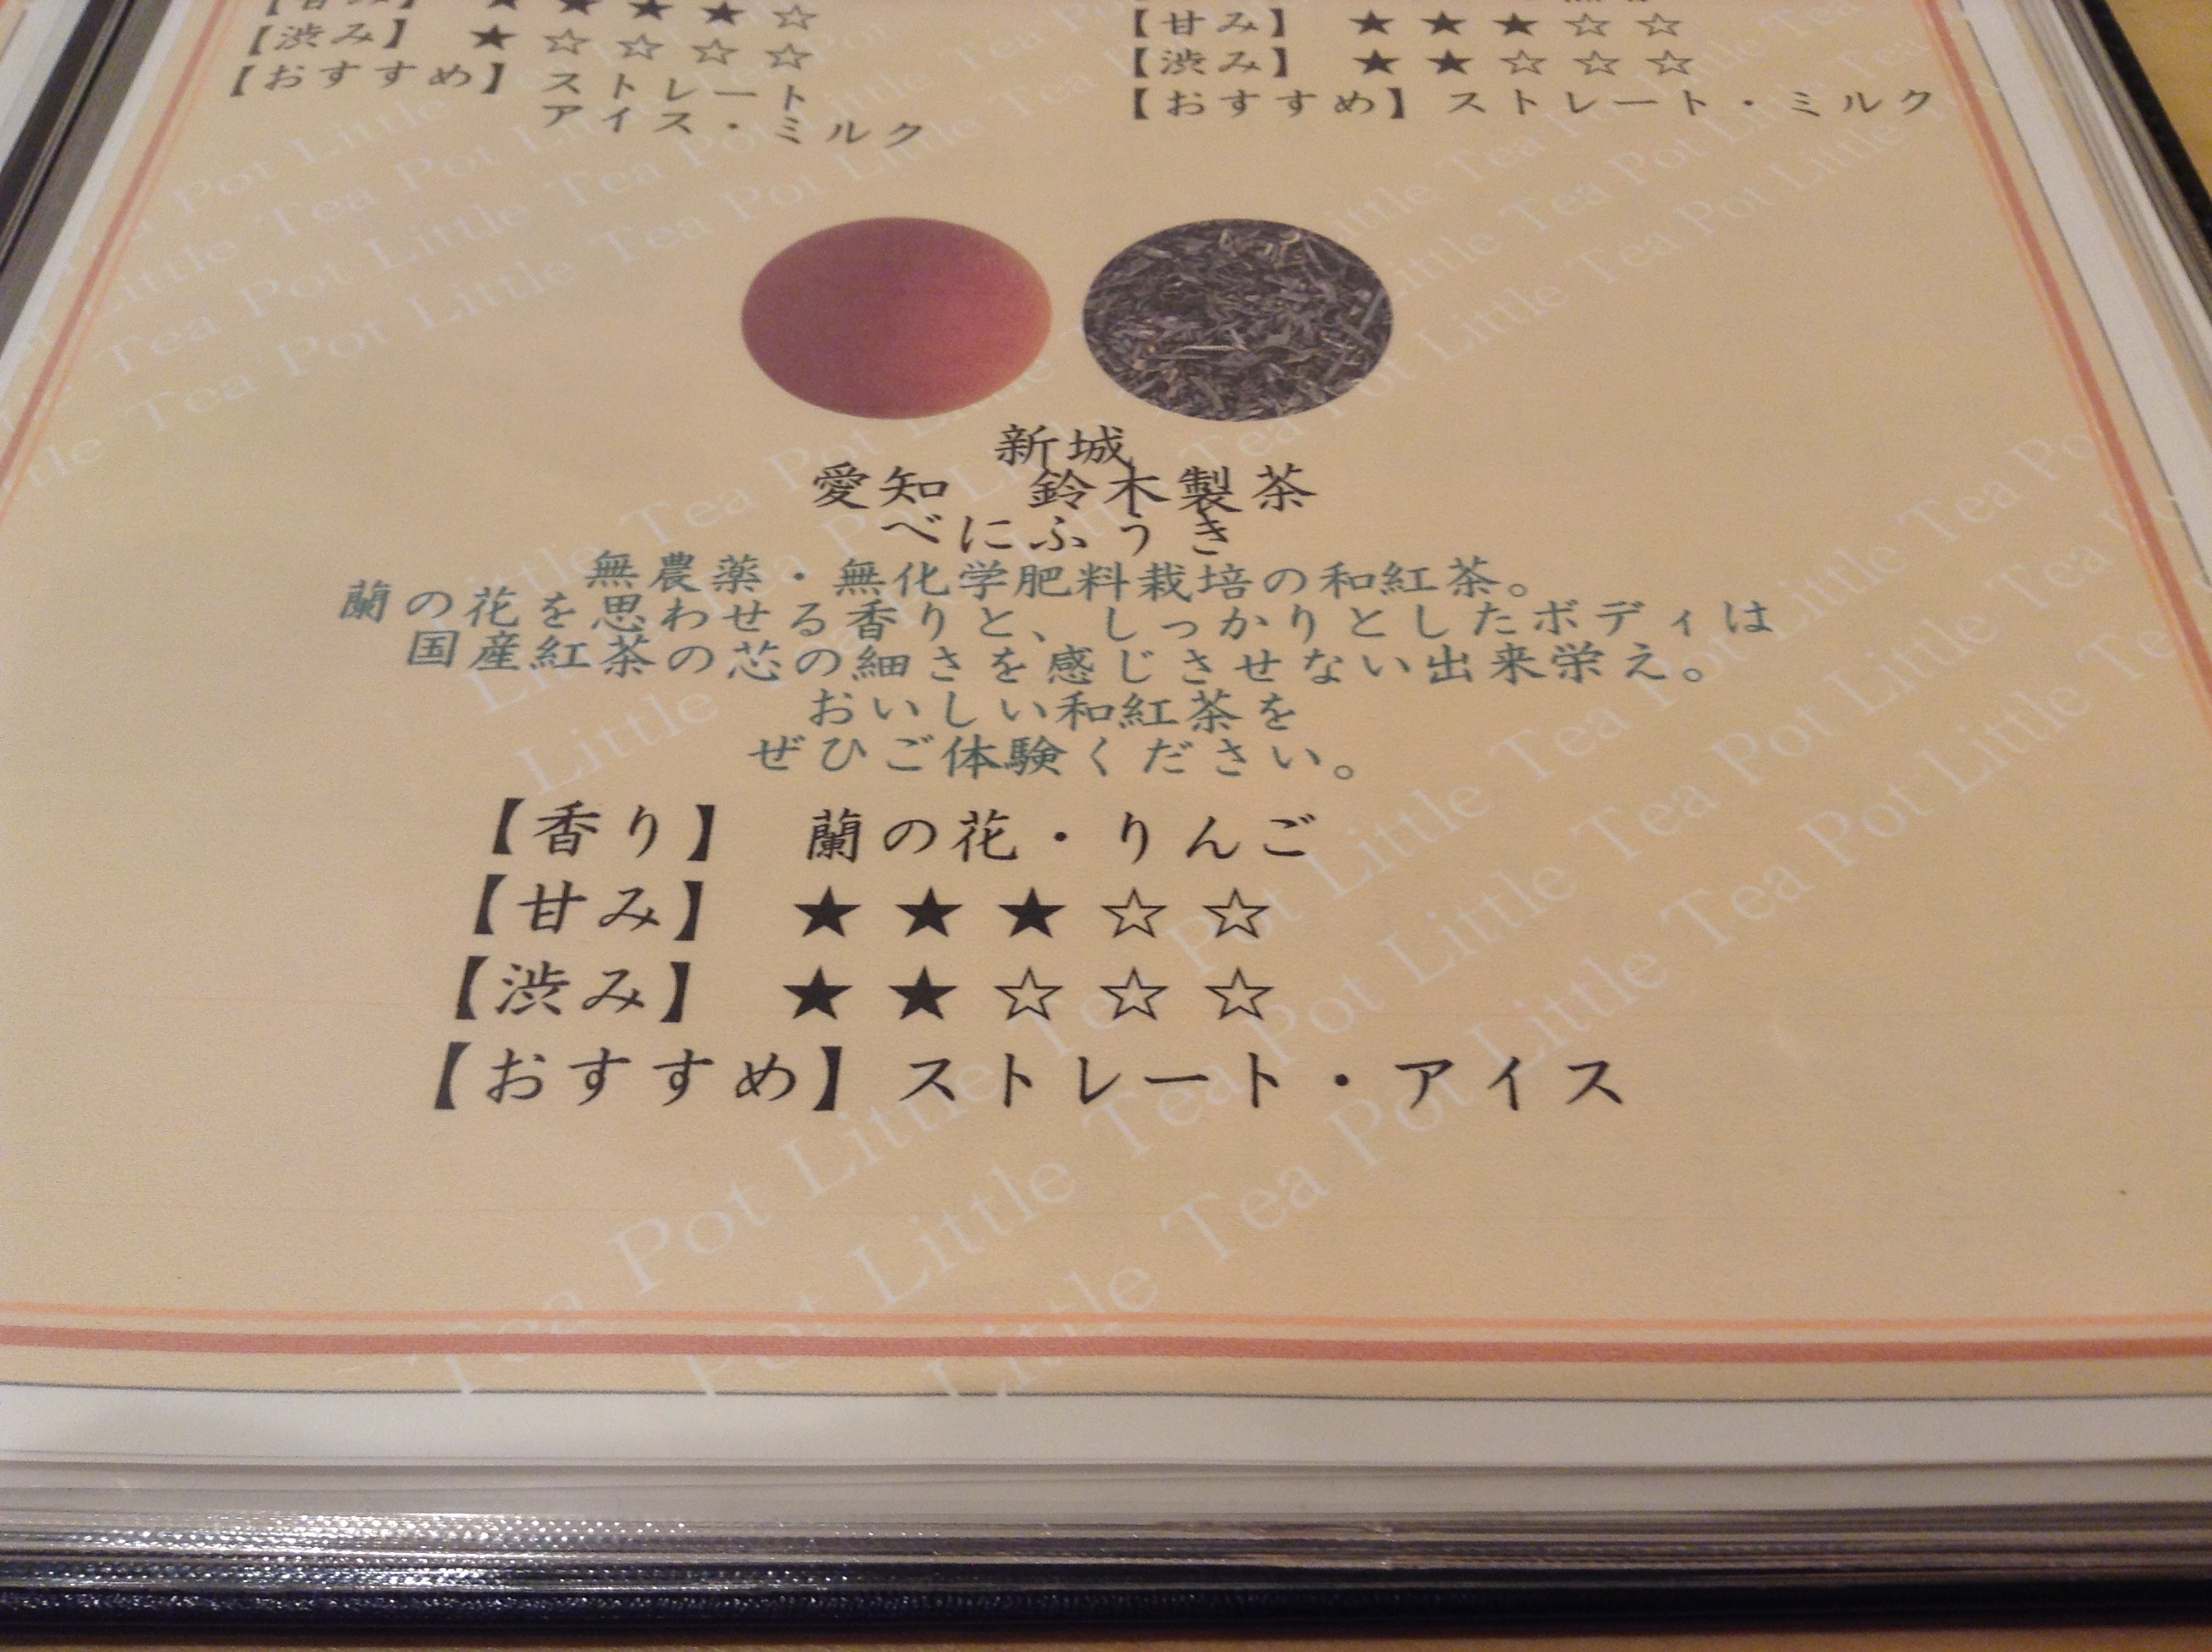 【甘み】 ★★★★☆
【渋み】 ★☆☆☆☆
【おすすめ】 ストレート
アイス・ミルク
【甘み】 ★★★☆☆
【渋み】 ★★☆☆☆
【おすすめ】 ストレート・ミルク
新城
愛知 鈴木製茶
べにふうき
無農薬・無化学肥料栽培の和紅茶。
蘭の花を思わせる香りと、しっかりとしたボディは
国産紅茶の芯の細さを感じさせない出来栄え。
おいしい和紅茶を
ぜひご体験ください。
【香り】 蘭の花・りんご
【甘み】 ★★★☆☆
【渋み】 ★★☆☆☆
【おすすめ】ストレート・アイス
Little Tea Pot Little Tea Pot Little Tea Pot